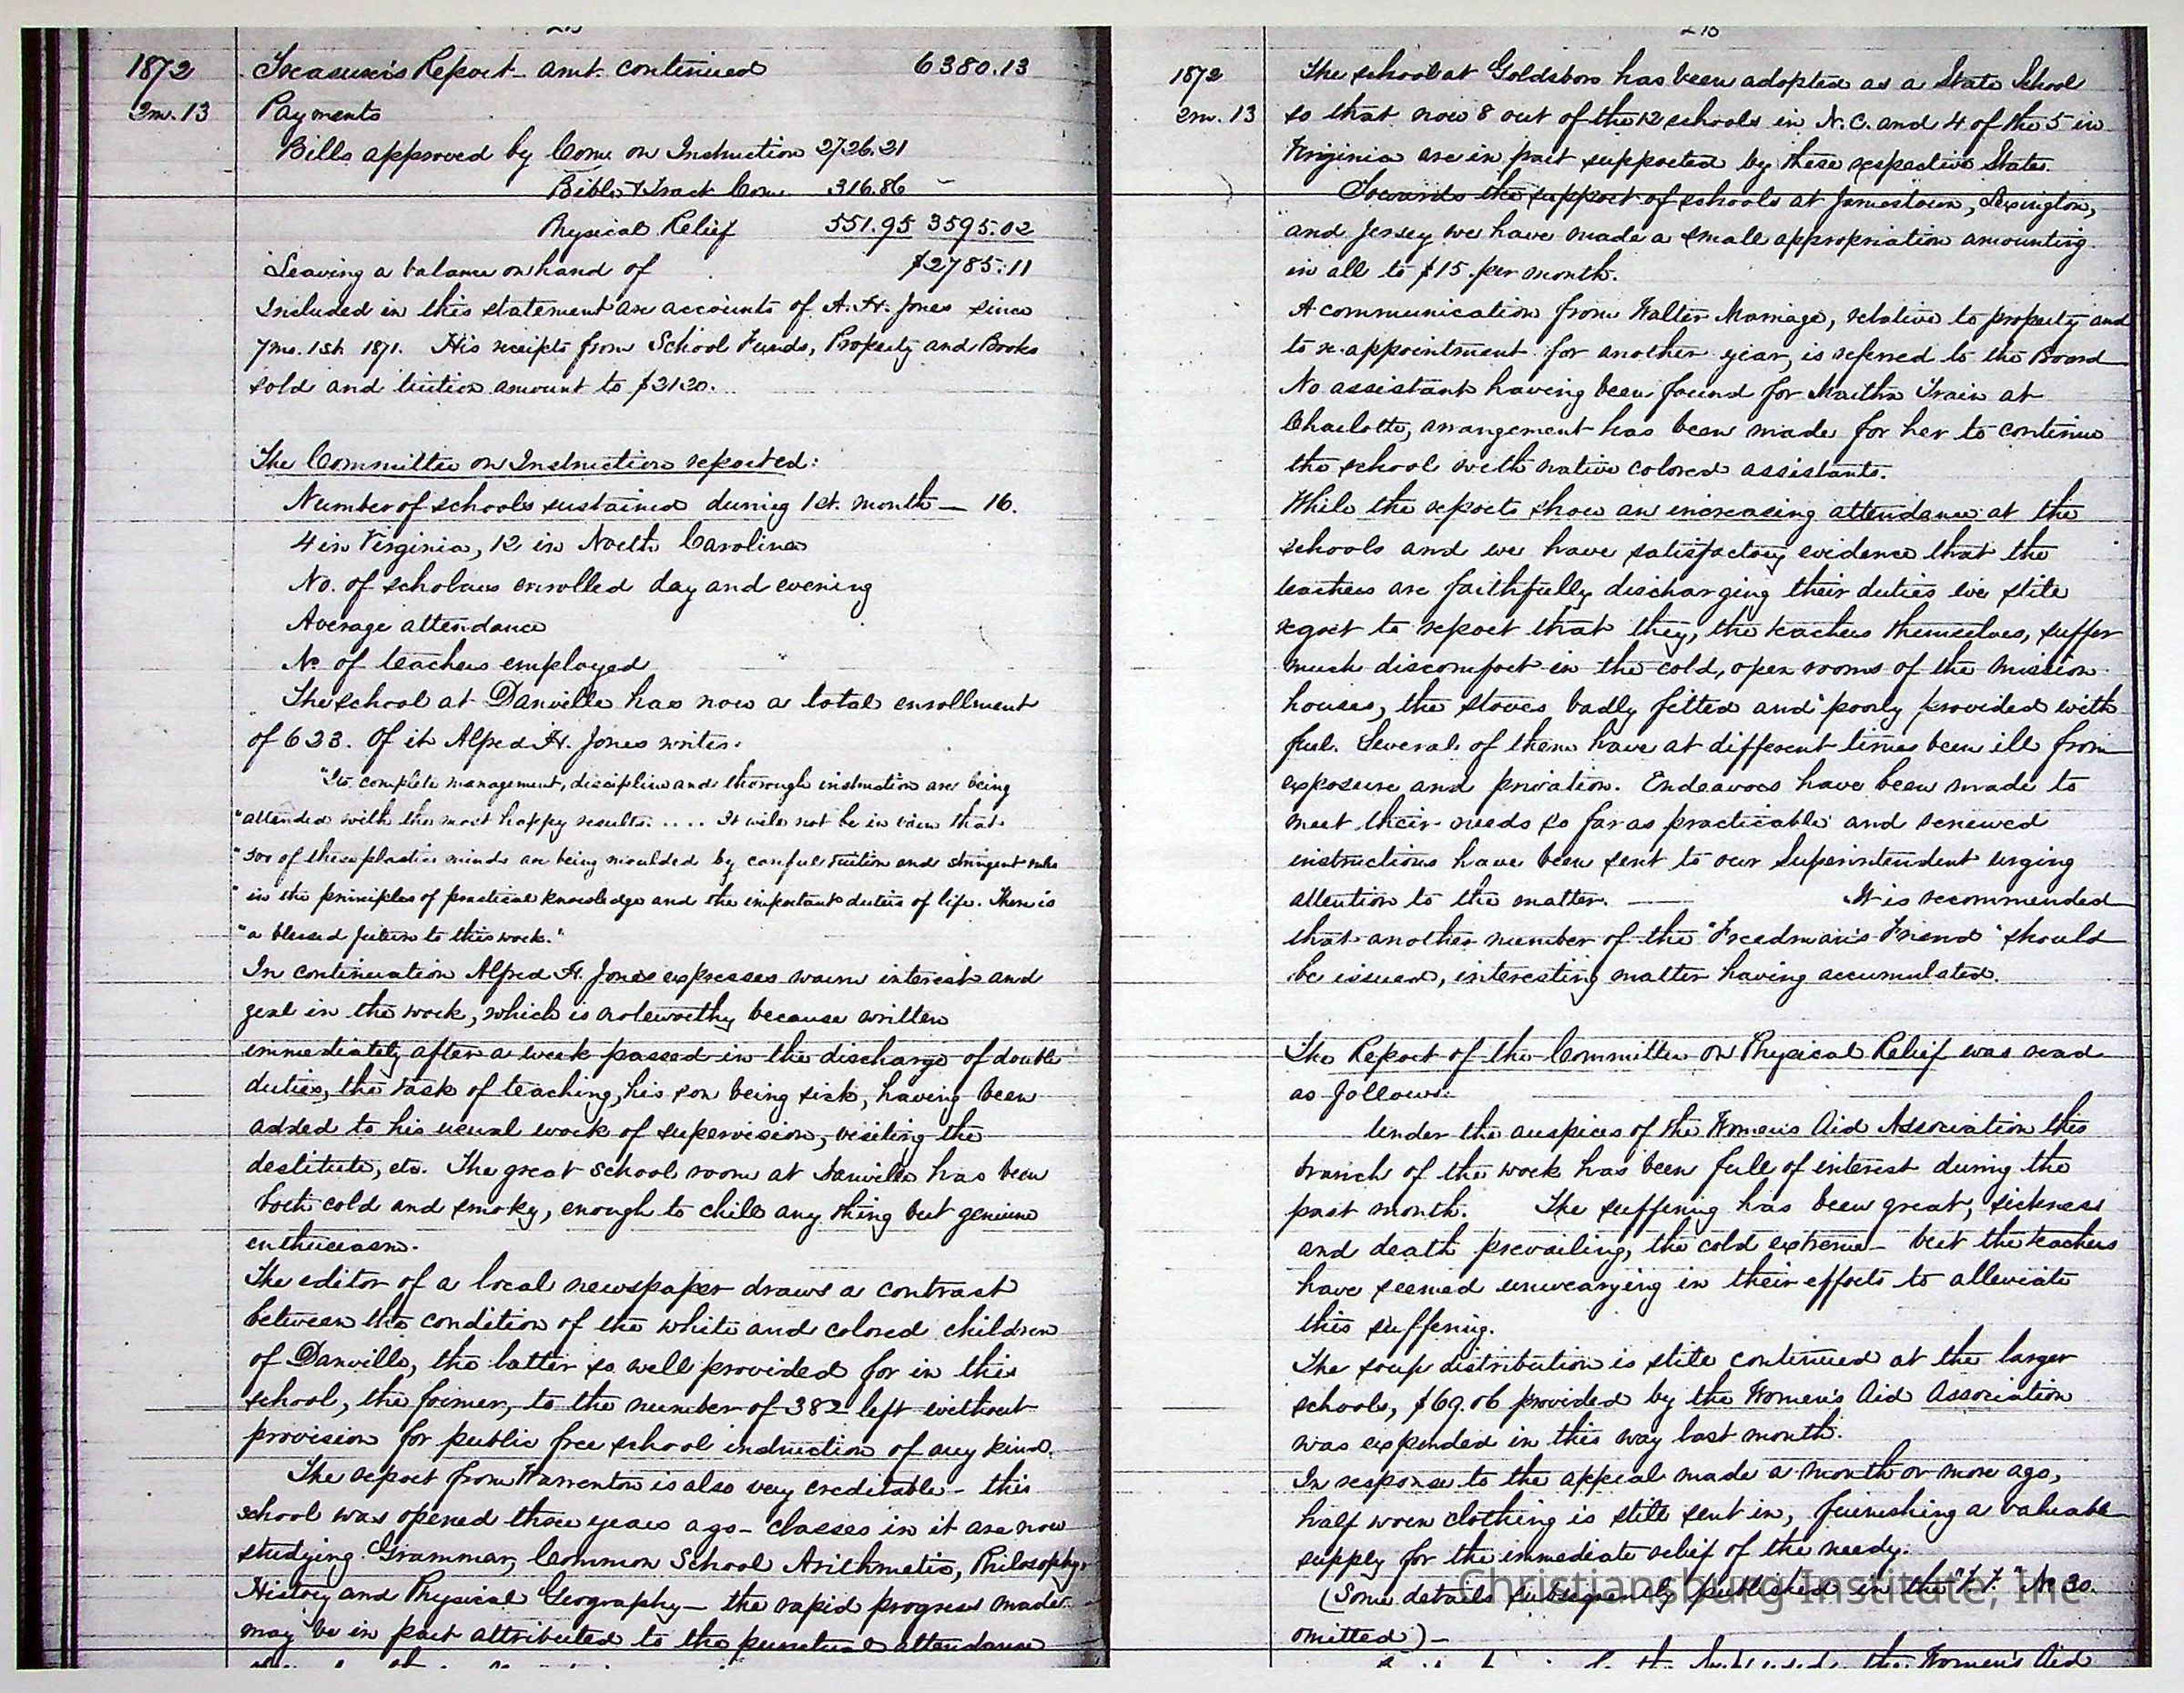 1872 Treasurer's Report amt. continued 6380.13
2m. 13 Payments
Bills approved by Com. on Instruction 2726.21
Bible & Tract Com. 316.86
Physical Relief 551.95 3595.02
Leaving a balance on hand of $2785.11
Included in this statement are accounts of A. H. Jones since
7mo. 1st 1871. His receipts from School Funds, Property and Books
sold and tuition amount to $2120.
The Committee on Instruction reported:
Number of schools sustained during 1st. month — 16.
4 in Virginia, 12 in North Carolina
No. of scholars enrolled day and evening
Average attendance
No. of teachers employed
The school at Danville has now a total enrollment
of 633. Of it Alfred H. Jones writes:
"Its complete management, discipline and thorough instruction are being
"attended with the most happy results. .... It will not be in vain that
" of these plastic minds are being moulded by careful tuition and stringent rules
" in the principles of practical knowledge and the important duties of life. There is
"a blessed future to this work."
In continuation Alfred H. Jones expresses warm interest and
zeal in the work, which is noteworthy because written
immediately after a week passed in the discharge of double
duties, the task of teaching, his son being sick, having been
added to his usual work of supervision, visiting the
destitute, etc. The great school room at Danville has been
both cold and smoky, enough to chill any thing but genuine
enthusiasm.
The editor of a local newspaper draws a contrast
between the condition of the white and colored children
of Danville, the latter so well provided for in this
school, the former, to the number of 382 left without
provision for public free school instruction of any kind.
The report from Warrenton is also very creditable - this
school was opened three years ago - classes in it are now
studying Grammar, Common School Arithmetic, Philosophy,
History and Physical Geography — the rapid progress made
may be in part attributed to the punctual attendance
1872 The school at Goldsboro has been adopted as a State School
2m. 13 so that now 8 out of the 12 schools in N.C. and 4 of the 5 in
Virginia are in part supported by these respective States.
Towards the support of schools at Jamestown, Lexington,
and Jersey we have made a small appropriation amounting
in all to $15. per month.
A communication from Walter Marriage, relative to property and
to re-appointment for another year, is referred to the Board
No assistant having been found for Martha Train at
Charlotte, arrangement has been made for her to continue
the school with native colored assistants.
While the reports show an increasing attendance at the
schools and we have satisfactory evidence that the
teachers are faithfully discharging their duties we still
regret to report that they, the teachers themselves, suffer
much discomfort in the cold, open rooms of the mission
houses, the stoves badly fitted and poorly provided with
fuel. Several of them have at different times been ill from
exposure and privation. Endeavors have been made to
meet their needs so far as practicable and renewed
instructions have been sent to our Superintendent urging
attention to the matter. —— It is recommended
that another number of the "Freedman's Friend" should
be issued, interesting matter having accumulated.
The Report of the Committee on Physical Relief was read
as follows:
Under the auspices of the Women's Aid Association this
branch of the work has been full of interest during the
past month. The suffering has been great, sickness
and death prevailing, the cold extreme — but the teachers
have seemed unwearying in their efforts to alleviate
this suffering.
The soup distribution is still continued at the larger
schools, $69.06 provided by the Women's Aid Association
was expended in this way last month.
In response to the appeal made a month or more ago,
half worn clothing is still sent in, furnishing a valuable
supply for the immediate relief of the needy.
(Some details subsequently published in the "F.F." No 30.
omitted) —
the Women's Aid
Christiansburg Institute, Inc